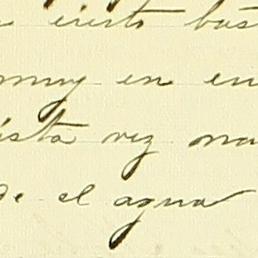 cierto bas
muy en en
ista vez na
de el agua